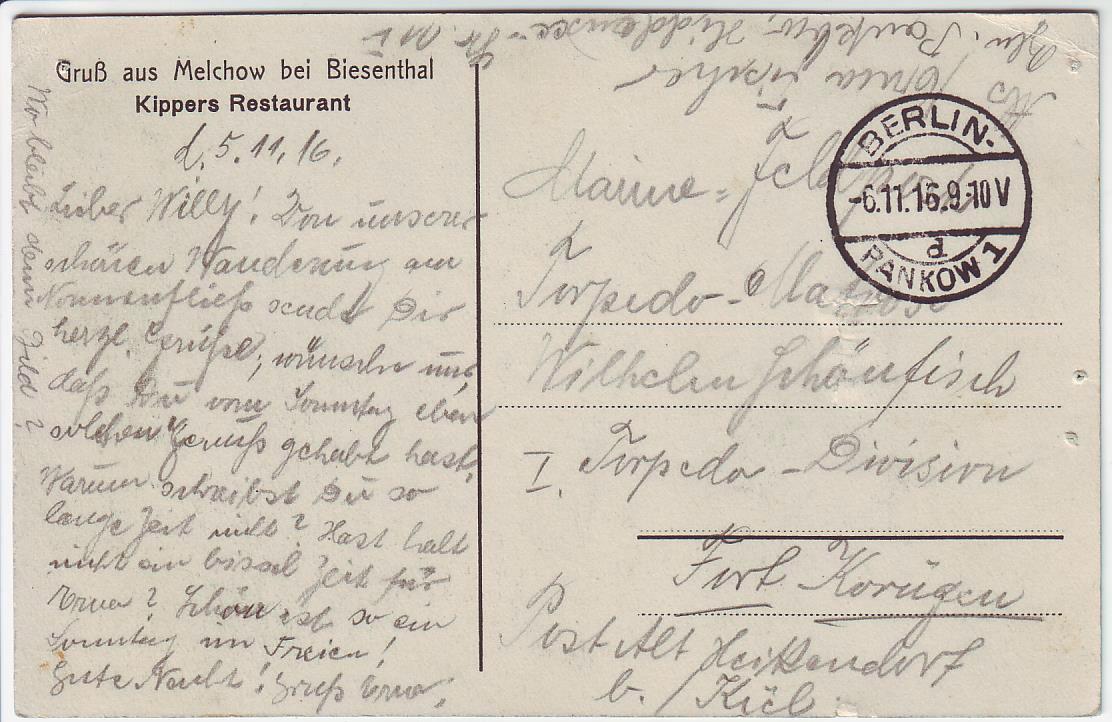 Gruß aus Melchow bei Biesenthal
Kippers Restaurant
d. 5.11.16.
Lieber Willy! Von unserer
schönen Wanderung am
Nonnenfließ sendet Dir
herzl. Grüße, wünschen nur,
daß Du vom Sonntag eben
solchen Genuß gehabt hast.
Warum schreibst Du so
lange Zeit nicht? Hast halt
nicht ein bissel Zeit für
Erna? Schön ist so ein
Sonntag im Freien!
Gute Nacht! Gruß Erna.
Wo bleibt denn Bild?
Abs. Erna Fischer
Bln. Pankow, Hiddensee-Str.
Marine-Feldpost
Torpedo-Matrose
Wilhelm Schönfisch
I. Torpedo-Division
Fort Korügen
Post Alt Heikendorf
b. Kiel
BERLIN-
-6.11.16.9-10V
d
PANKOW 1